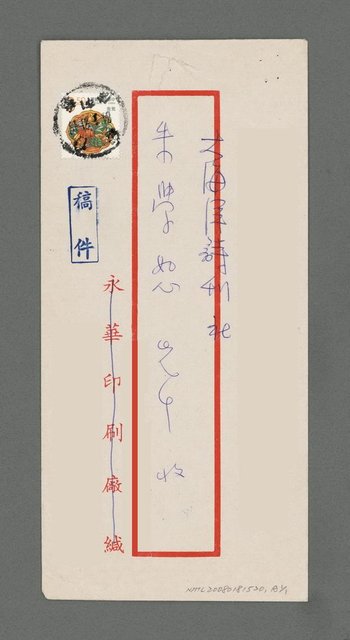 大海洋詩刊社
朱學恕 先生 收
稿件
永華印刷廠緘
NMTL20080181520